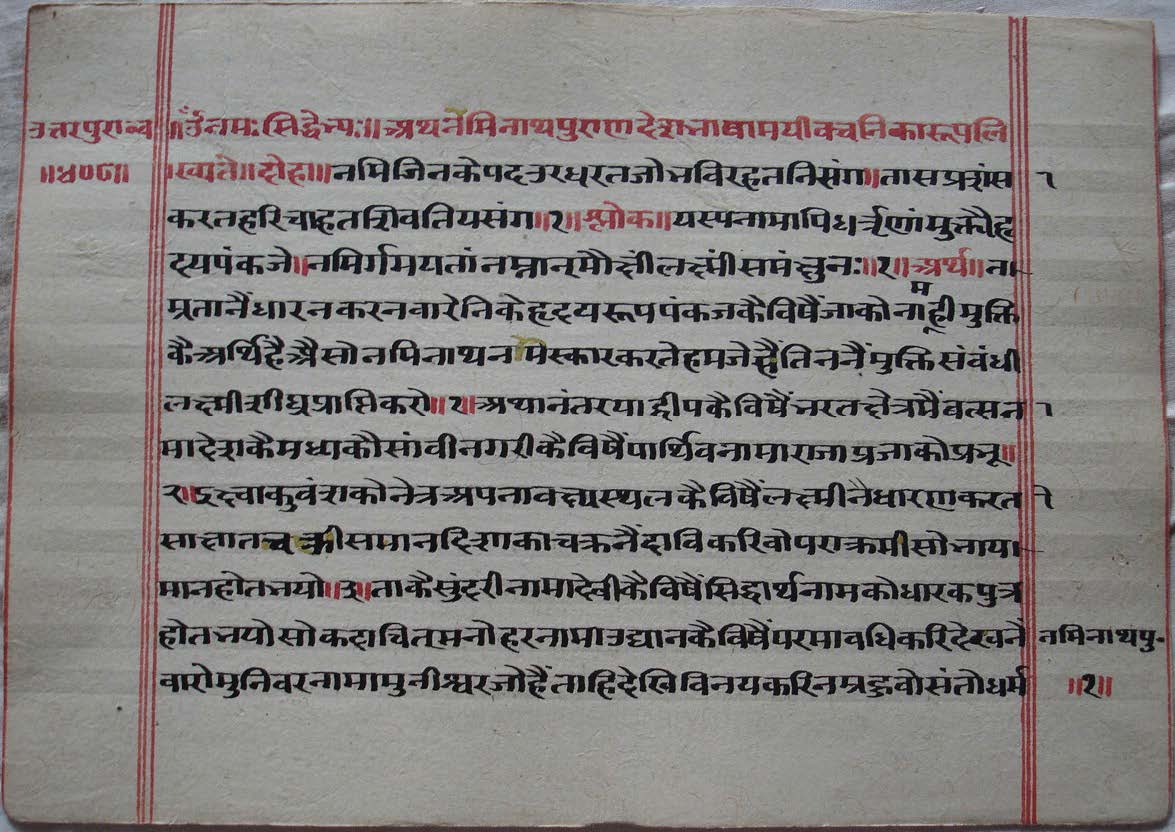 उत्तरपुरान्व ॥ॐनमःसिद्धेभ्यः॥अथनेमिनाथपुराणदेशभाषामयीवचनिकारूपलि
॥४०८॥ ख्यते॥दोहा॥नमिजिनकेपदउरधरतजोभविरहतनिसंग॥तासप्रशंस
करतहरिचाहतशिवतियसंग॥१॥श्लोक॥यस्पनामापिधर्त्रूणांमुक्तौहृ
दयपंकजे॥नमिर्गमयतांनम्रान्मौक्षींलक्ष्मींसमंक्षुनः॥१॥अर्थ॥ना
म
म्रतानैंधारनकरनवारेनिकेहृदयरूपपंकजकैविषैंजाकोनाहीमुक्ति
कैअर्थिहैअैसोनमिनाथनमस्कारकरतेहमजेहैंतिननैंमुक्तिसंबंधी
लक्ष्मीशीघ्रप्राप्तिकरो॥१॥अथानंतरयाद्वीपकैविषैंभरतक्षेत्रमैंवत्सन
मादेशकैमध्यकौसांवीनगरीकैविषैंपार्थिवनामाराजाप्रजाकोप्रभू॥
२॥इक्ष्वाकुवंशकोनेत्रअपनावक्षस्थलकैविषैंलक्ष्मीनैधारणकरत
साक्षातचक्रीसमानदिशिणकाचक्रनैंदाविकरिवोपराक्रमीसोभाया
मानहोतभयो॥३॥ताकैसुंदरीनामादेवीकैविषैंसिद्धार्थनामकोधारकपुत्र
होतभयोसोकदाचित्मनोहरनामाउद्यानकैविषैंपरमावधिकरिदेखनै नमिनाथपु॰
वारोमुनिवरनामामुनीश्वरजोहैंताहिदेखिविनयकरिनम्रहुवोसंतोधर्म ॥१॥